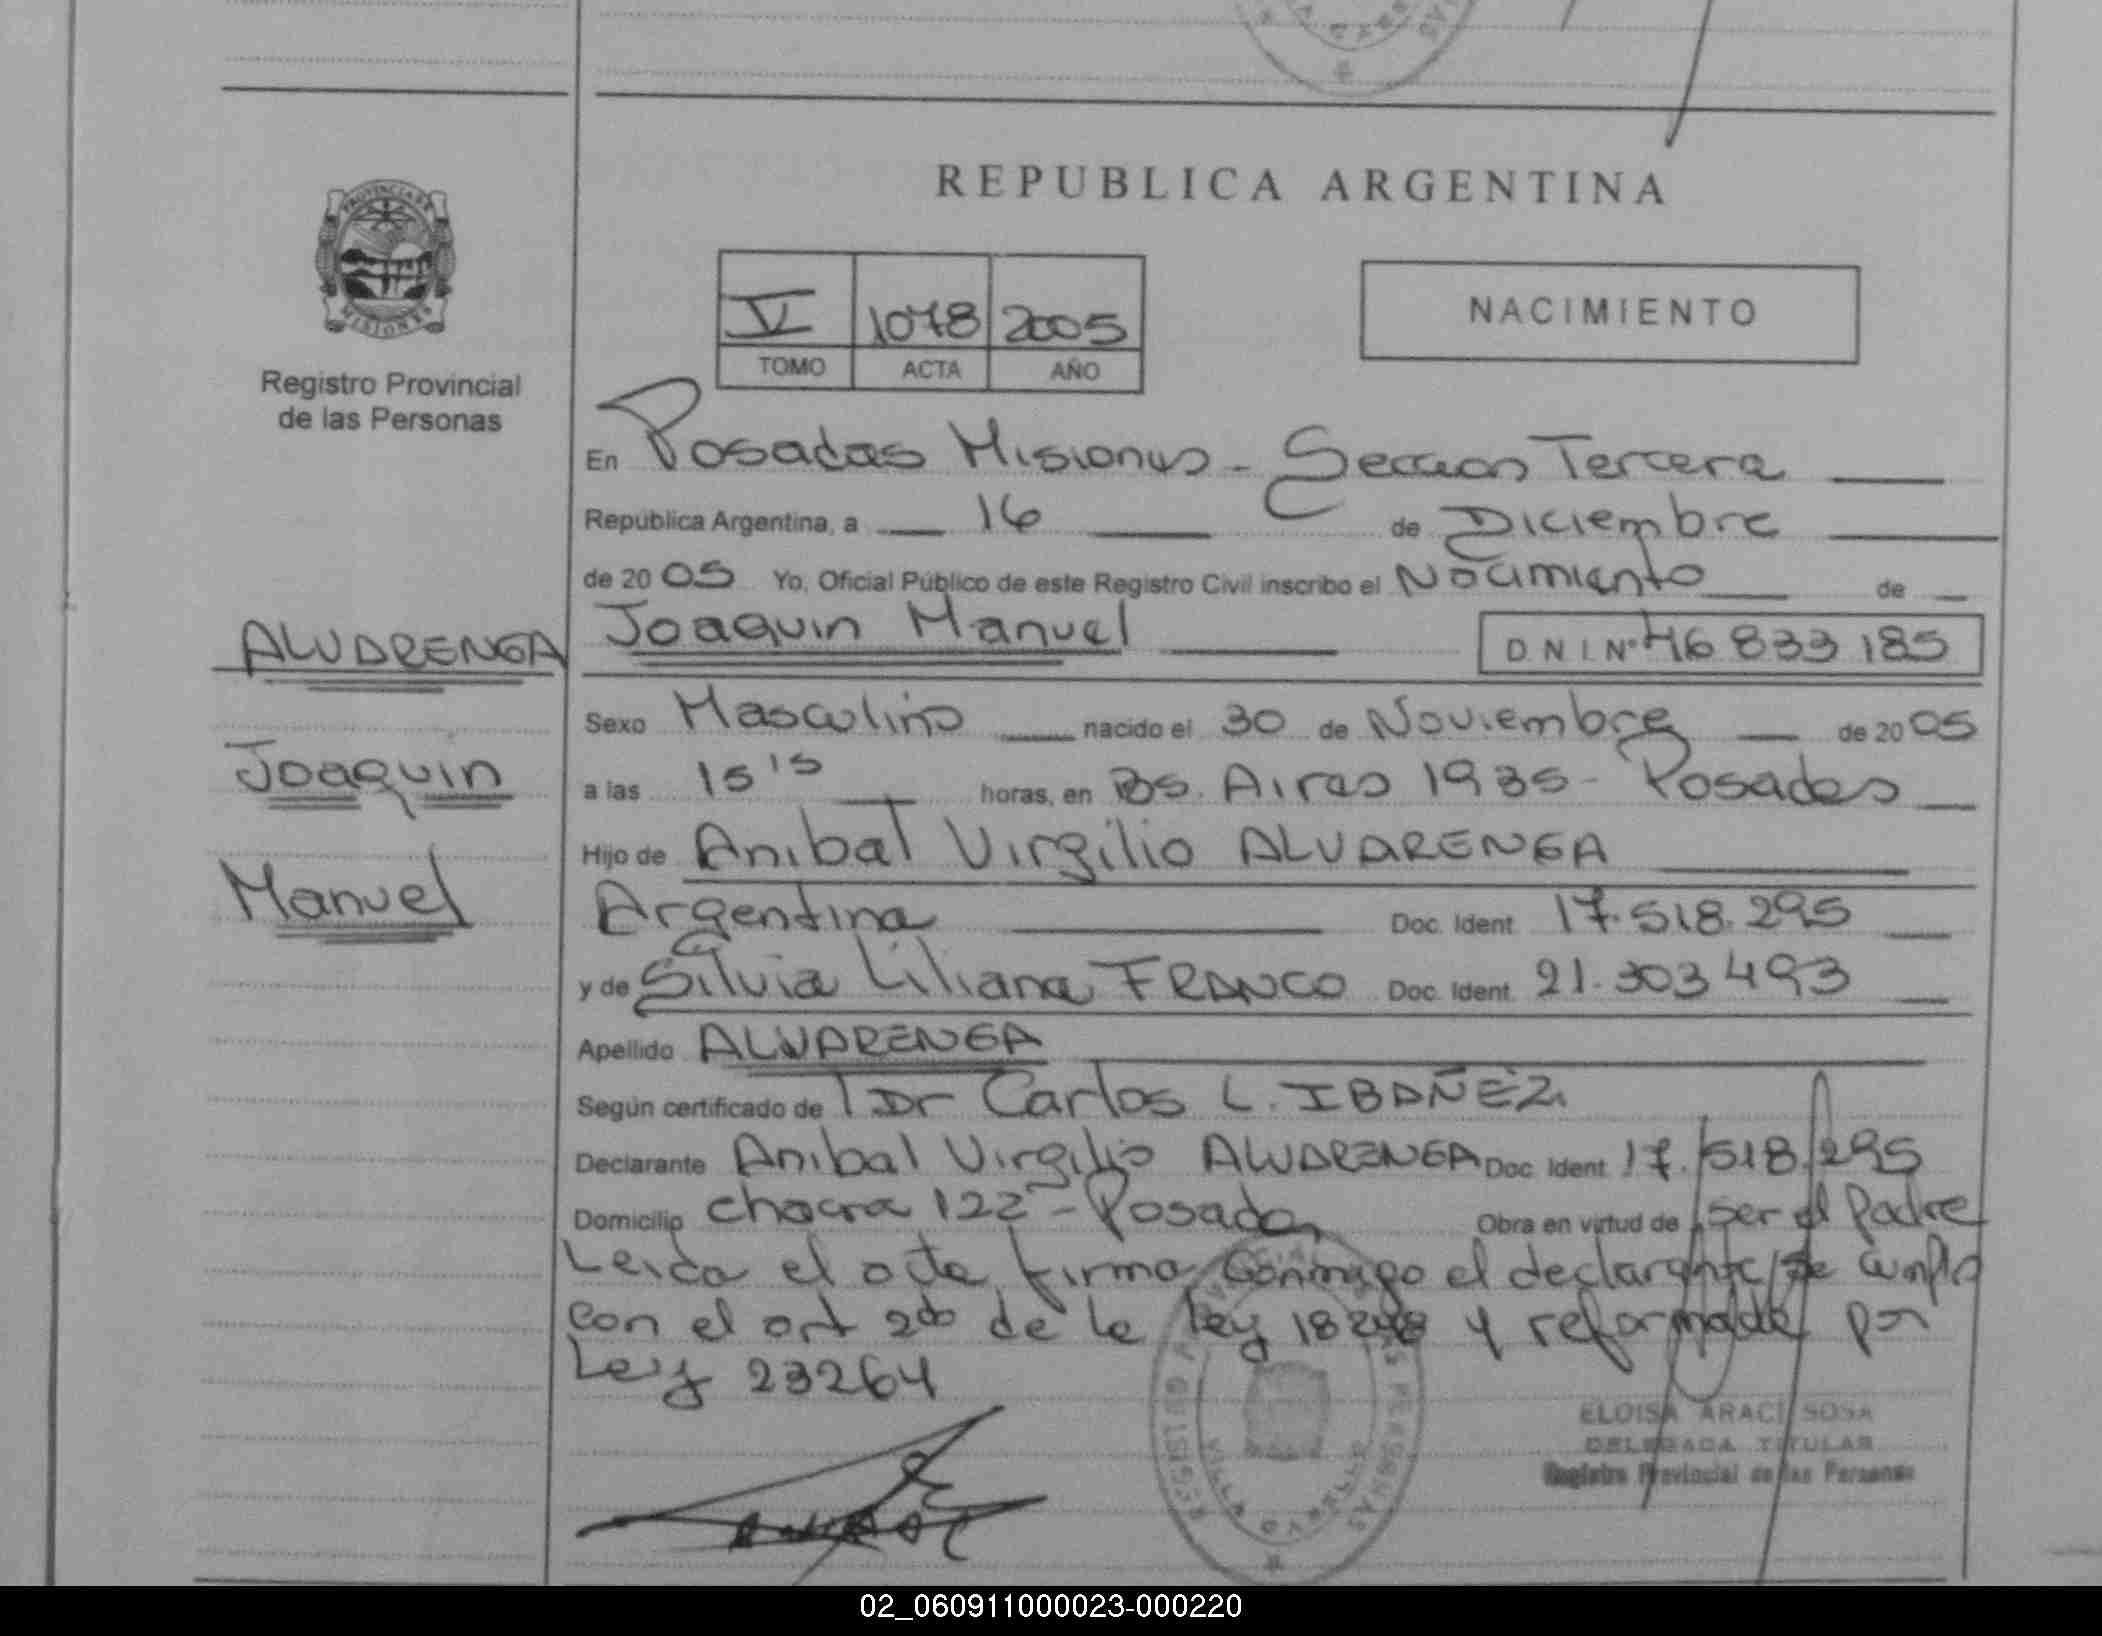 REPUBLICA ARGENTINA
PROVINCIA DE
MISIONES
Registro Provincial
de las Personas
V 1078 2005
TOMO ACTA AÑO
NACIMIENTO
En Posadas Misiones - Seccion Tercera
República Argentina, a 16 de Diciembre
de 20 05 Yo, Oficial Público de este Registro Civil inscribo el Nacimiento de
ALVARENGA Joaquin Manuel D.N.I. Nº 46 833 185
Sexo Masculino nacido el 30 de Noviembre de 20 05
Joaquin
a las 15 15 horas, en Bs. Aires 1935 - Posadas
Hijo de Anibal Virgilio ALVARENGA
Manuel
Argentina Doc. Ident 17.518.295
y de Silvia Liliana FRANCO Doc. Ident. 21.303 493
Apellido ALVARENGA
Según certificado de Dr Carlos L. IBAÑEZ
Declarante Anibal Virgilio ALVARENGA Doc. Ident 17.518.295
Domicilio chacra 122 - Posadas Obra en virtud de ser el Padre
Leida el acta firma conmigo el declarante se cumplio
con el art 2do de la Ley 18248 y reformada por
Ley 23264
ELOISA ARACI SOSA
DELEGADA TITULAR
Registro Provincial de las Personas
02_060911000023-000220